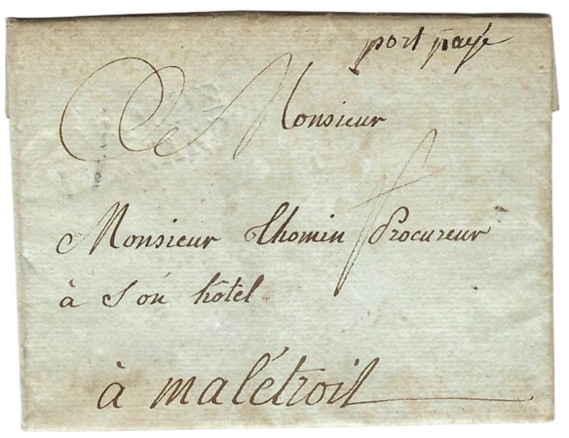 port payé
Monsieur
Monsieur Thomin Procureur
à Son hôtel
à malétroit